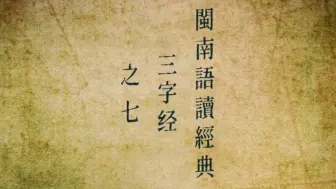 閩南語讀經典
三字经
之七